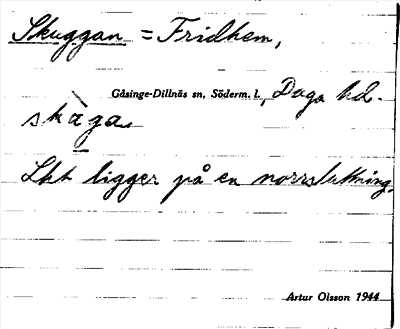 Skuggan = Fridhem,
Gåsinge-Dillnäs sn, Söderm. l., Daga hd.
skàgan
Lht ligger på en norrsluttning.
Artur Olsson 1944